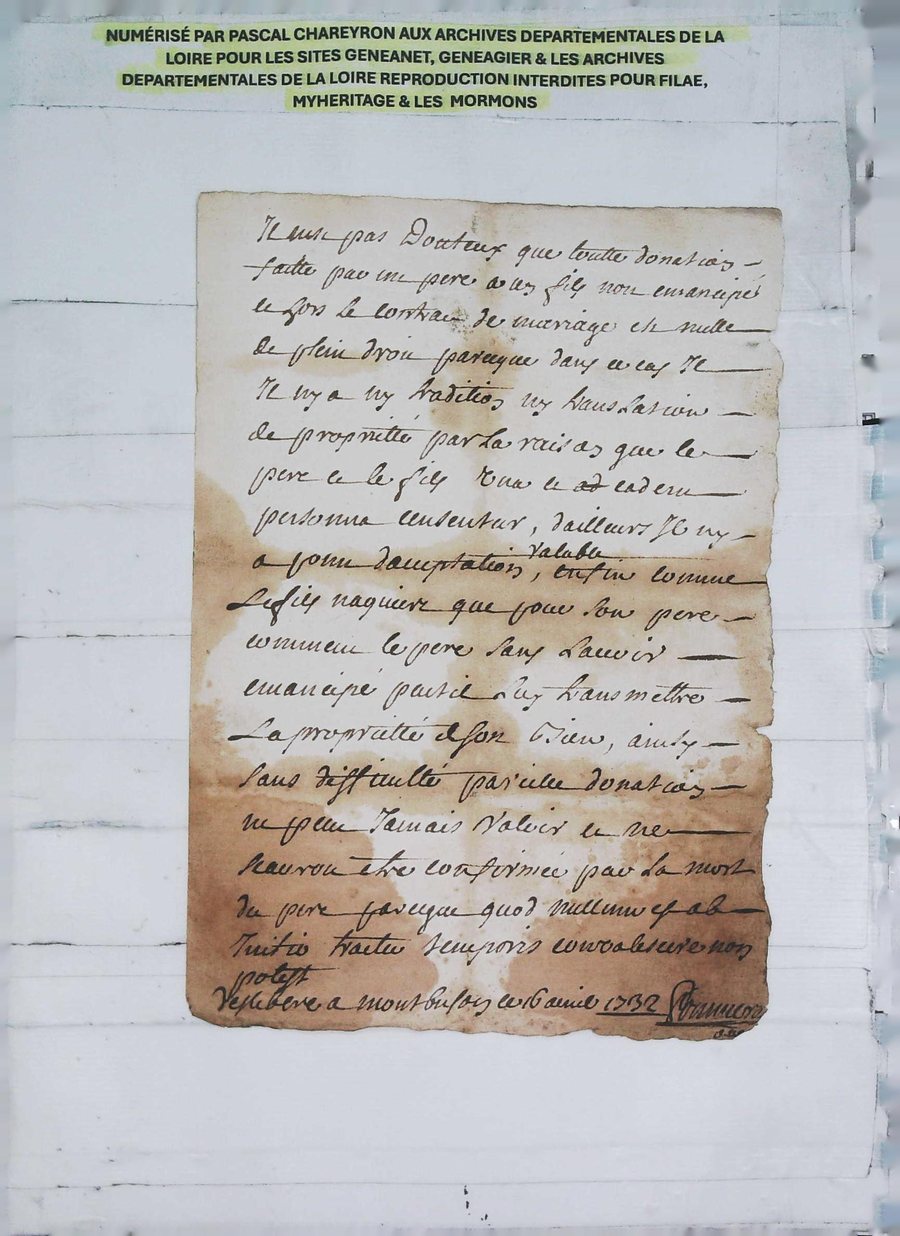 NUMÉRISÉ PAR PASCAL CHAREYRON AUX ARCHIVES DEPARTEMENTALES DE LA
LOIRE POUR LES SITES GENEANET, GENEAGIER & LES ARCHIVES
DEPARTEMENTALES DE LA LOIRE REPRODUCTION INTERDITES POUR FILAE,
MYHERITAGE & LES MORMONS
Il nest pas Douteux que toutte donation
faitte par un pere a un fils non emancipé
et hors le contract de mariage est nulle
de plein droit parceque dans ce cas Il
Il ny a ny tradition ny translation
de proprietté par la raison que le
pere et le fils una et ad eadem
persona censentur, dailleurs Il ny
a point dacceptation valable, enfin comme
Le fils naquiert que pour son pere
comment le pere sans Lavoir
emancipé peut il Luy transmettre
La proprietté de son Bien, ainsy
sans difficulté pareille donation
ne peut Jamais valoir et ne
scauroit etre confirmée par La mort
du pere parceque quod nullum est ab
Initio tractu temporis convalescere non
potest
Deslibere a montbrison ce 16 avril 1732